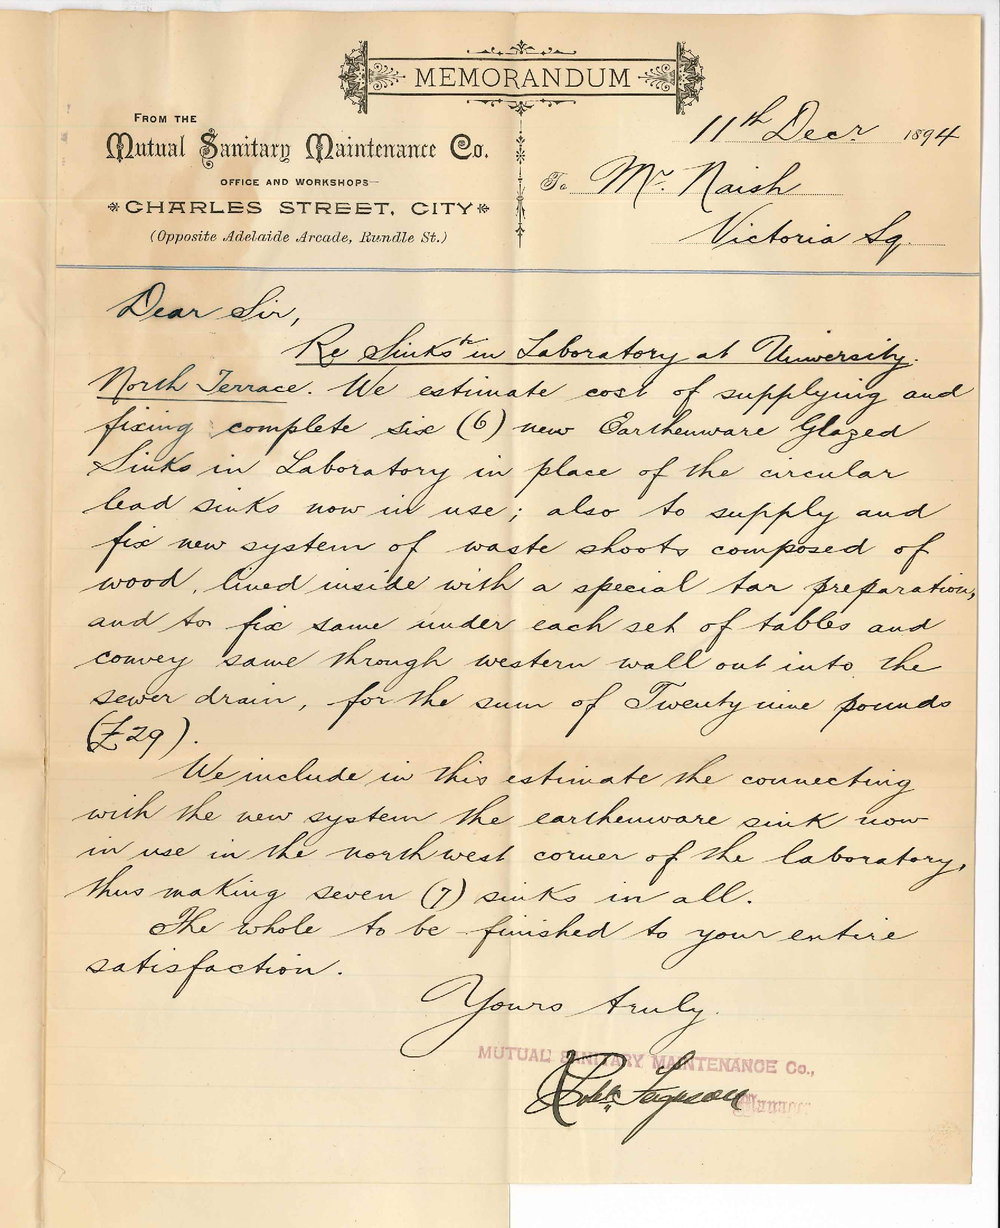 MEMORANDUM
FROM THE
Mutual Sanitary Maintenance Co.
OFFICE AND WORKSHOPS
CHARLES STREET, CITY
(Opposite Adelaide Arcade, Rundle St.)
11th Decr. 1894
To Mr. Naish
Victoria Sq.
Dear Sir,
Re Sinks &c in Laboratory at University.
North Terrace. We estimate cost of supplying and
fixing complete six (6) new Earthenware Glazed
Sinks in Laboratory in place of the circular
lead sinks now in use; also to supply and
fix new system of waste shoots composed of
wood, lined inside with a special tar preparation,
and to fix same under each set of tables and
convey same through western wall out into the
sewer drain, for the sum of Twenty nine pounds
(£29).
We include in this estimate the connecting
with the new system the earthenware sink now
in use in the north west corner of the laboratory,
thus making seven (7) sinks in all.
The whole to be finished to your entire
satisfaction.
Yours truly.
MUTUAL SANITARY MAINTENANCE Co.,
Robt. Ferguson
Manager